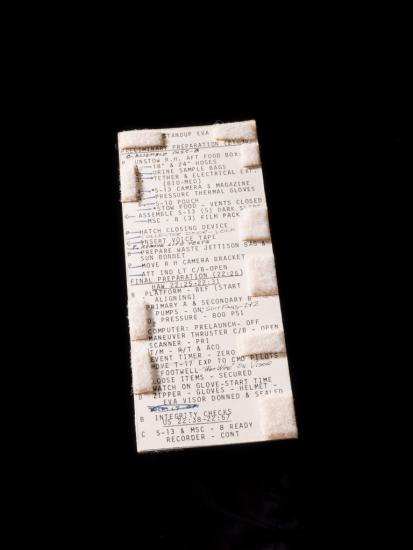 STANDUP EVA
PRELIMINARY PREPARATION
UNSTOW R.H. AFT FOOD BOX:
18" & 24" HOSES
URINE SAMPLE BAGS
TETHER & ELECTRICAL EXT.
(BIO-MED)
S-13 CAMERA & MAGAZINE
PRESSURE THERMAL GLOVES
S-10 POUCH
*STOW FOOD - VENTS CLOSED
ASSEMBLE S-13 (5) DARK SLIDE
MSC - 8 (3) FILM PACK
P HATCH CLOSING DEVICE
C INSERT VOICE TAPE
B PREPARE WASTE JETTISON BAG &
SUN BONNET
P MOVE R H CAMERA BRACKET
ATT IND LT C/B-OPEN
FINAL PREPARATION (22:26)
HAW 22:25-22:31
B PLATFORM - BEF (START
ALIGNING)
PRIMARY A & SECONDARY B
PUMPS - ON
PRESSURE - 800 PSI
COMPUTER: PRELAUNCH- OFF
MANEUVER THRUSTER C/B - OPEN
SCANNER - PRI
T/M - R/T & ACQ
EVENT TIMER - ZERO
MOVE T-17 EXP TO CMD PILOTS
FOOTWELL
LOOSE ITEMS - SECURED
WATCH ON GLOVE-START TIME
ZIPPER - GLOVES - HELMET -
EVA VISOR DONNED & SEALED
B INTEGRITY CHECKS
US 22:38-22:57
C S-13 & MSC - 8 READY
RECORDER - CONT